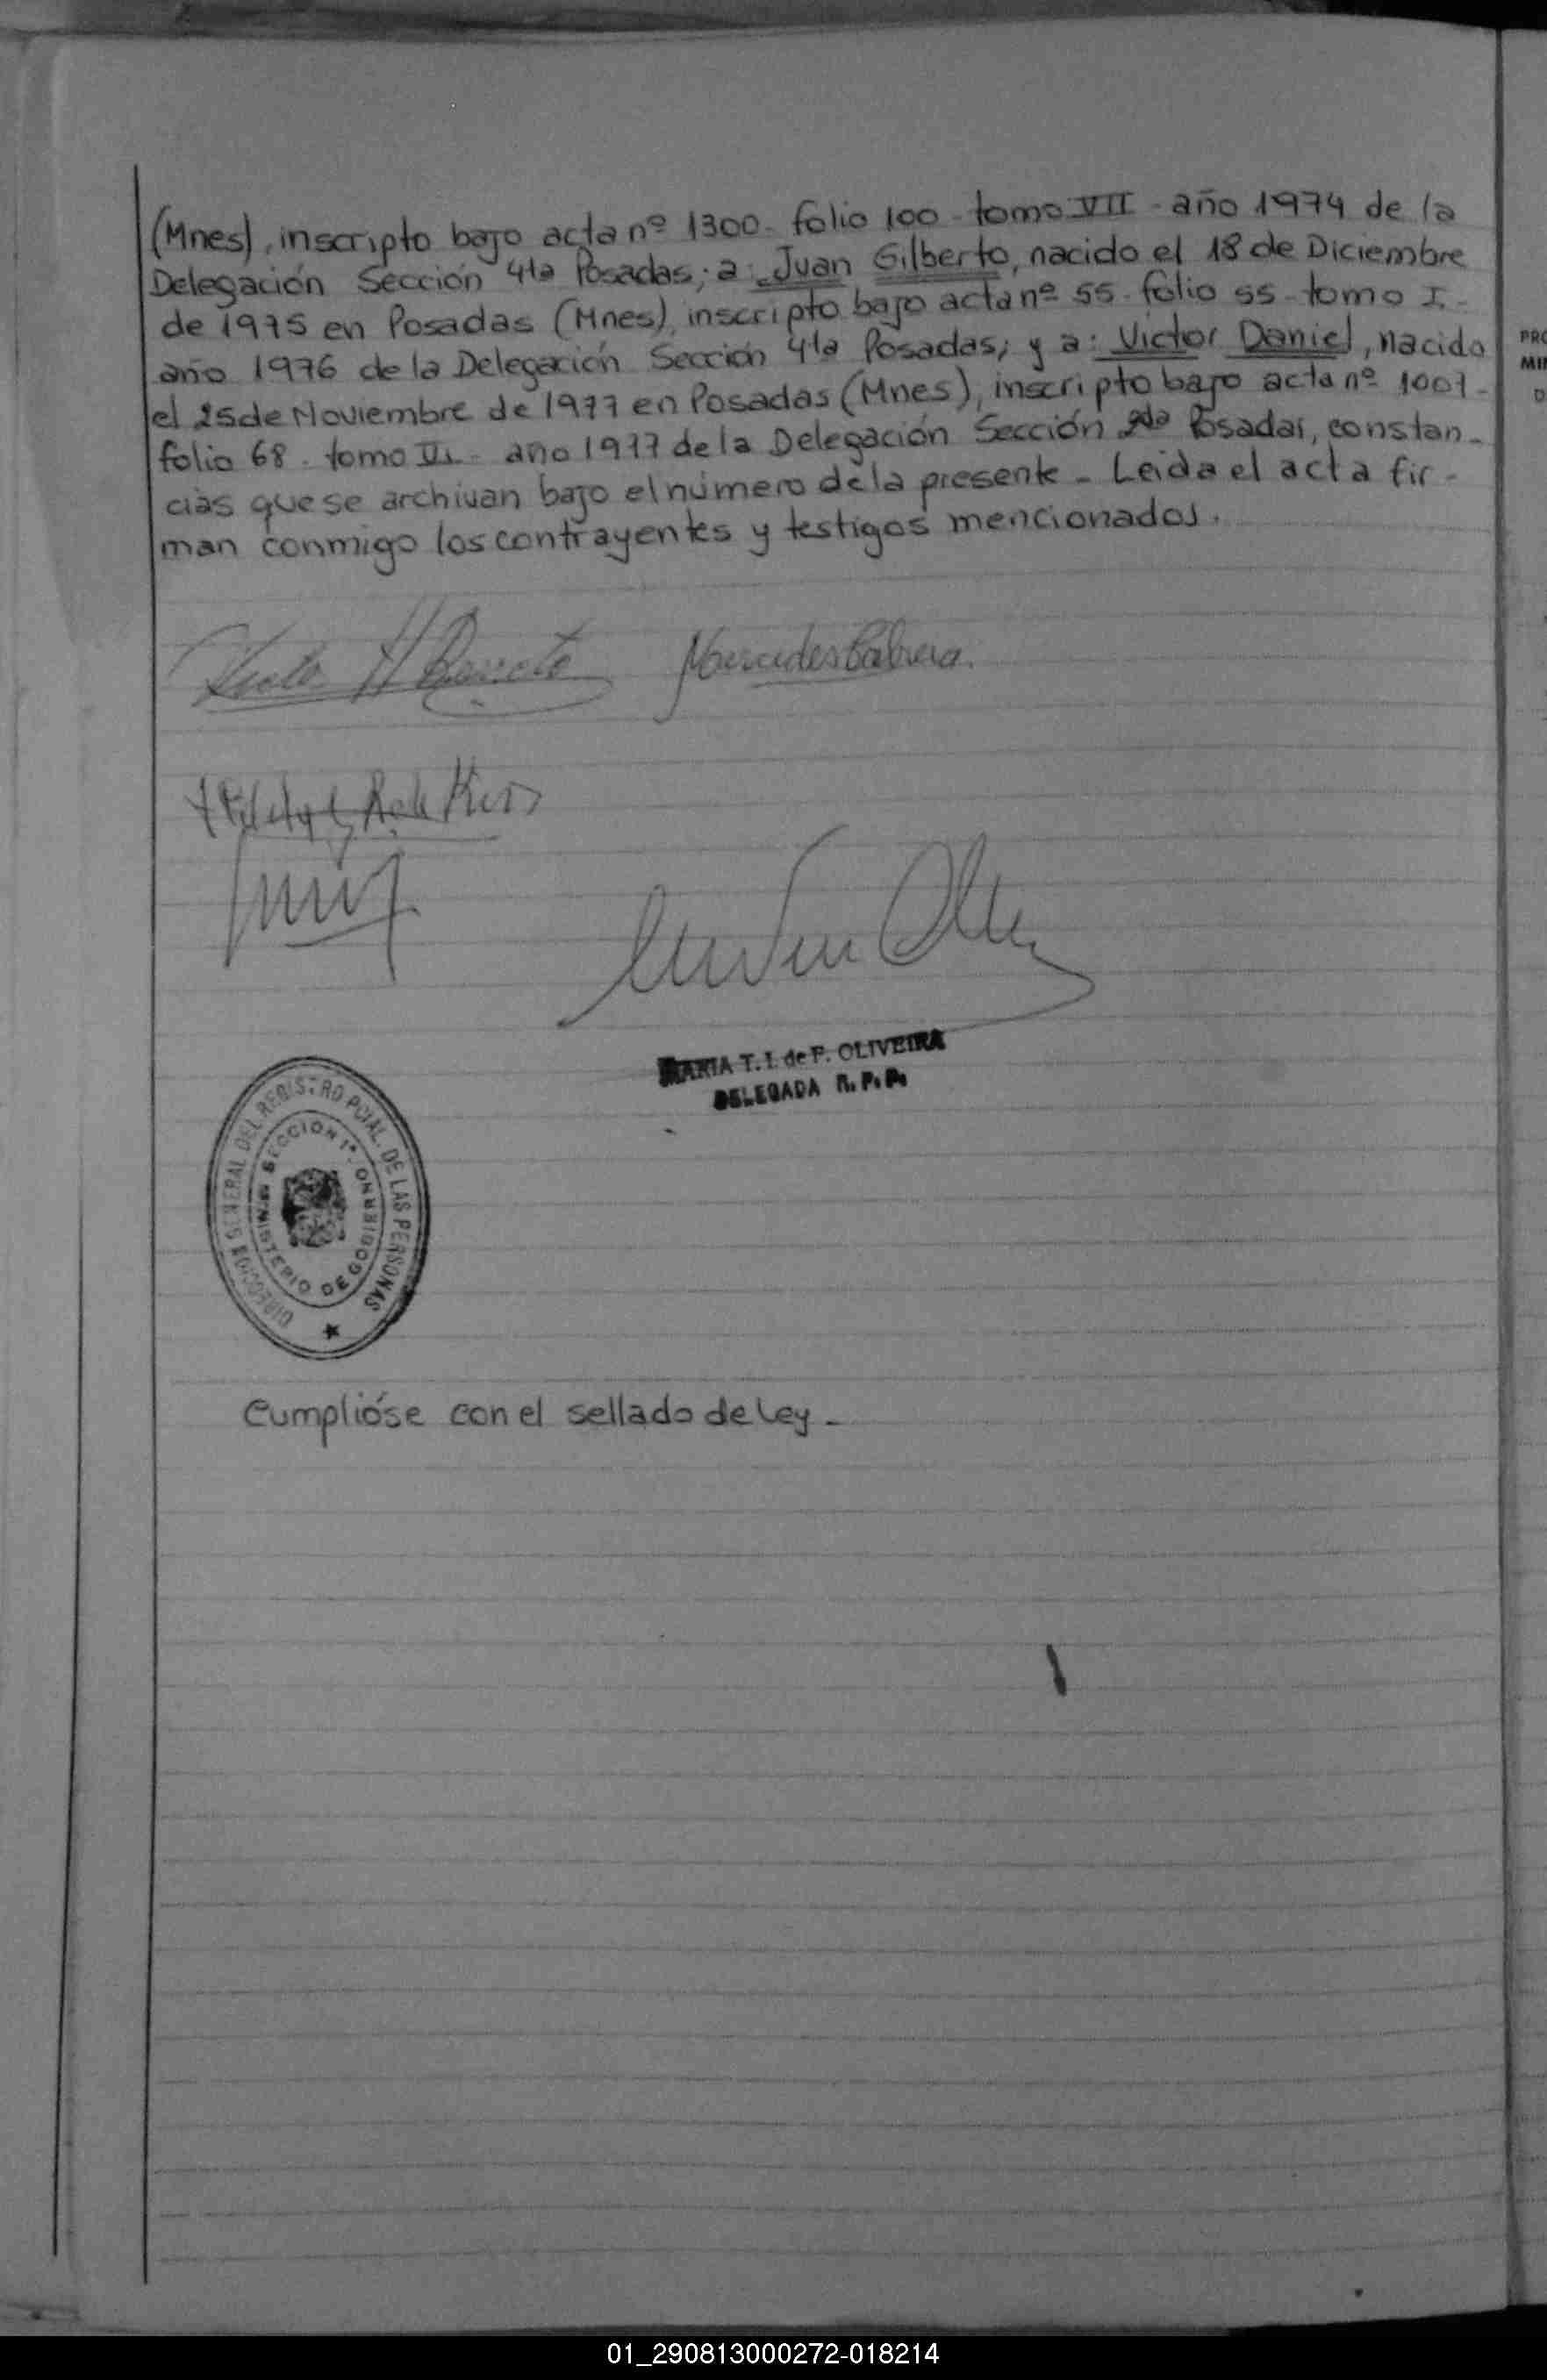 (Mnes), inscripto bajo acta nº 1300- folio 100- tomo VII - año 1974 de la
Delegación Sección 4ta Posadas; a: Juan Gilberto, nacido el 18 de Diciembre
de 1975 en Posadas (Mnes), inscripto bajo acta nº 55- folio 55- tomo I-
año 1976 de la Delegación Sección 4ta Posadas; y a: Victor Daniel, nacido
el 25 de Noviembre de 1977 en Posadas (Mnes), inscripto bajo acta nº 1007-
folio 68- tomo VI- año 1977 de la Delegación Sección 2da Posadas, constan-
cias que se archivan bajo el número de la presente - Leida el acta fir-
man conmigo los contrayentes y testigos mencionados.
Mercedes Cabrera
MARIA T. I. de F. OLIVEIRA
DELEGADA R. P. P.
DIRECCION GENERAL DEL REGISTRO PCIAL. DE LAS PERSONAS
SECCION 1ª
MINISTERIO DE GOBIERNO
Cumplióse con el sellado de Ley -
PRO
MIN
D
01_290813000272-018214